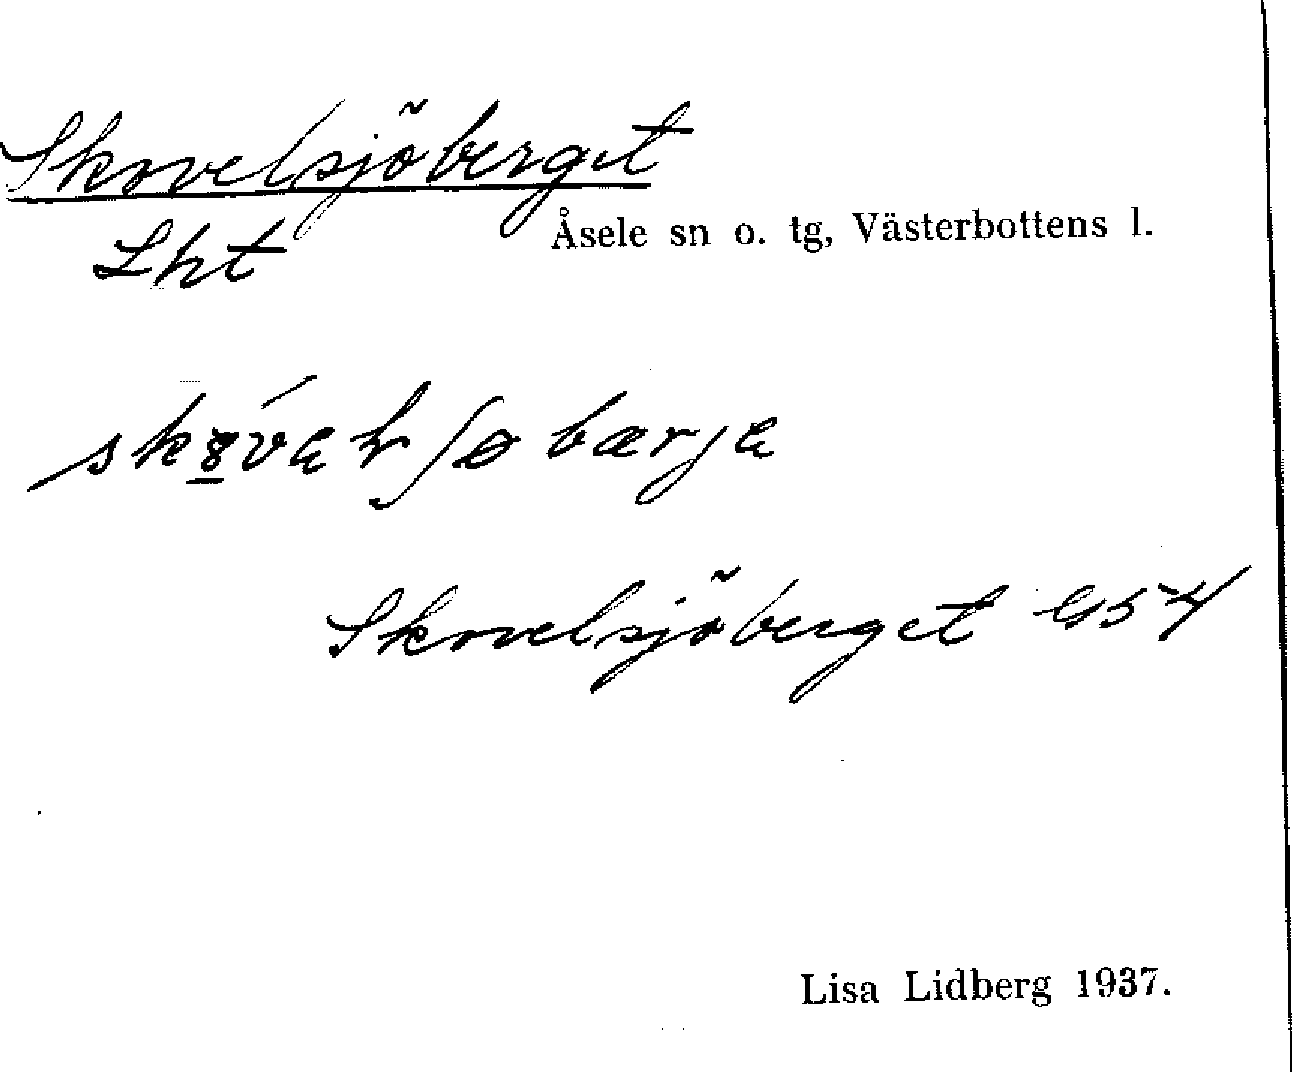 Skovelsjöberget
Lht
Åsele sn o. tg, Västerbottens l.
Skovelsjöberget G54
Lisa Lidberg 1937.